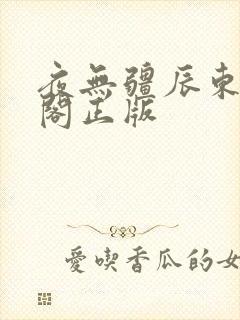 夜無疆辰東
閣正版
愛喫香瓜的女